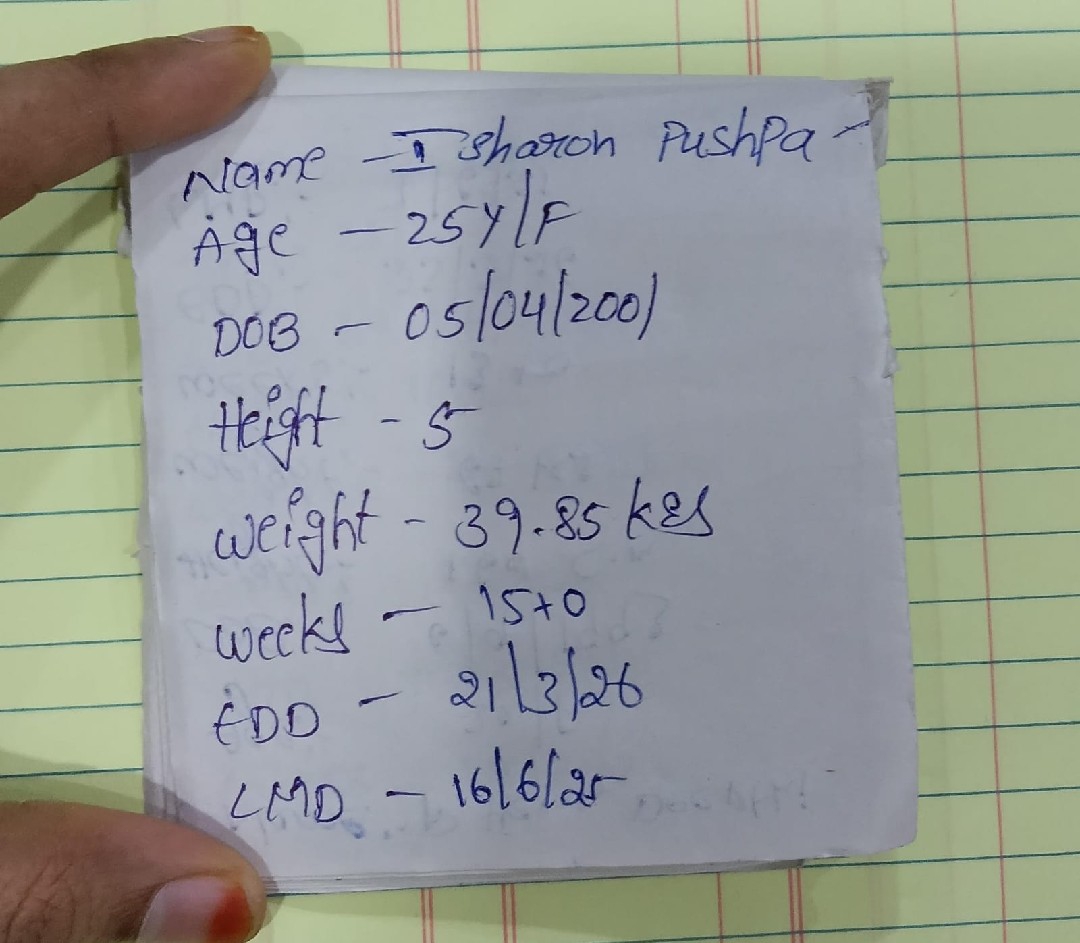 Name - I Sharon Pushpa
Age - 25Y/F
DOB - 05/04/2001
Height - 5
Weight - 39.85 kgs
weeks - 15+0
EDD - 21/3/26
LMD - 16/6/25